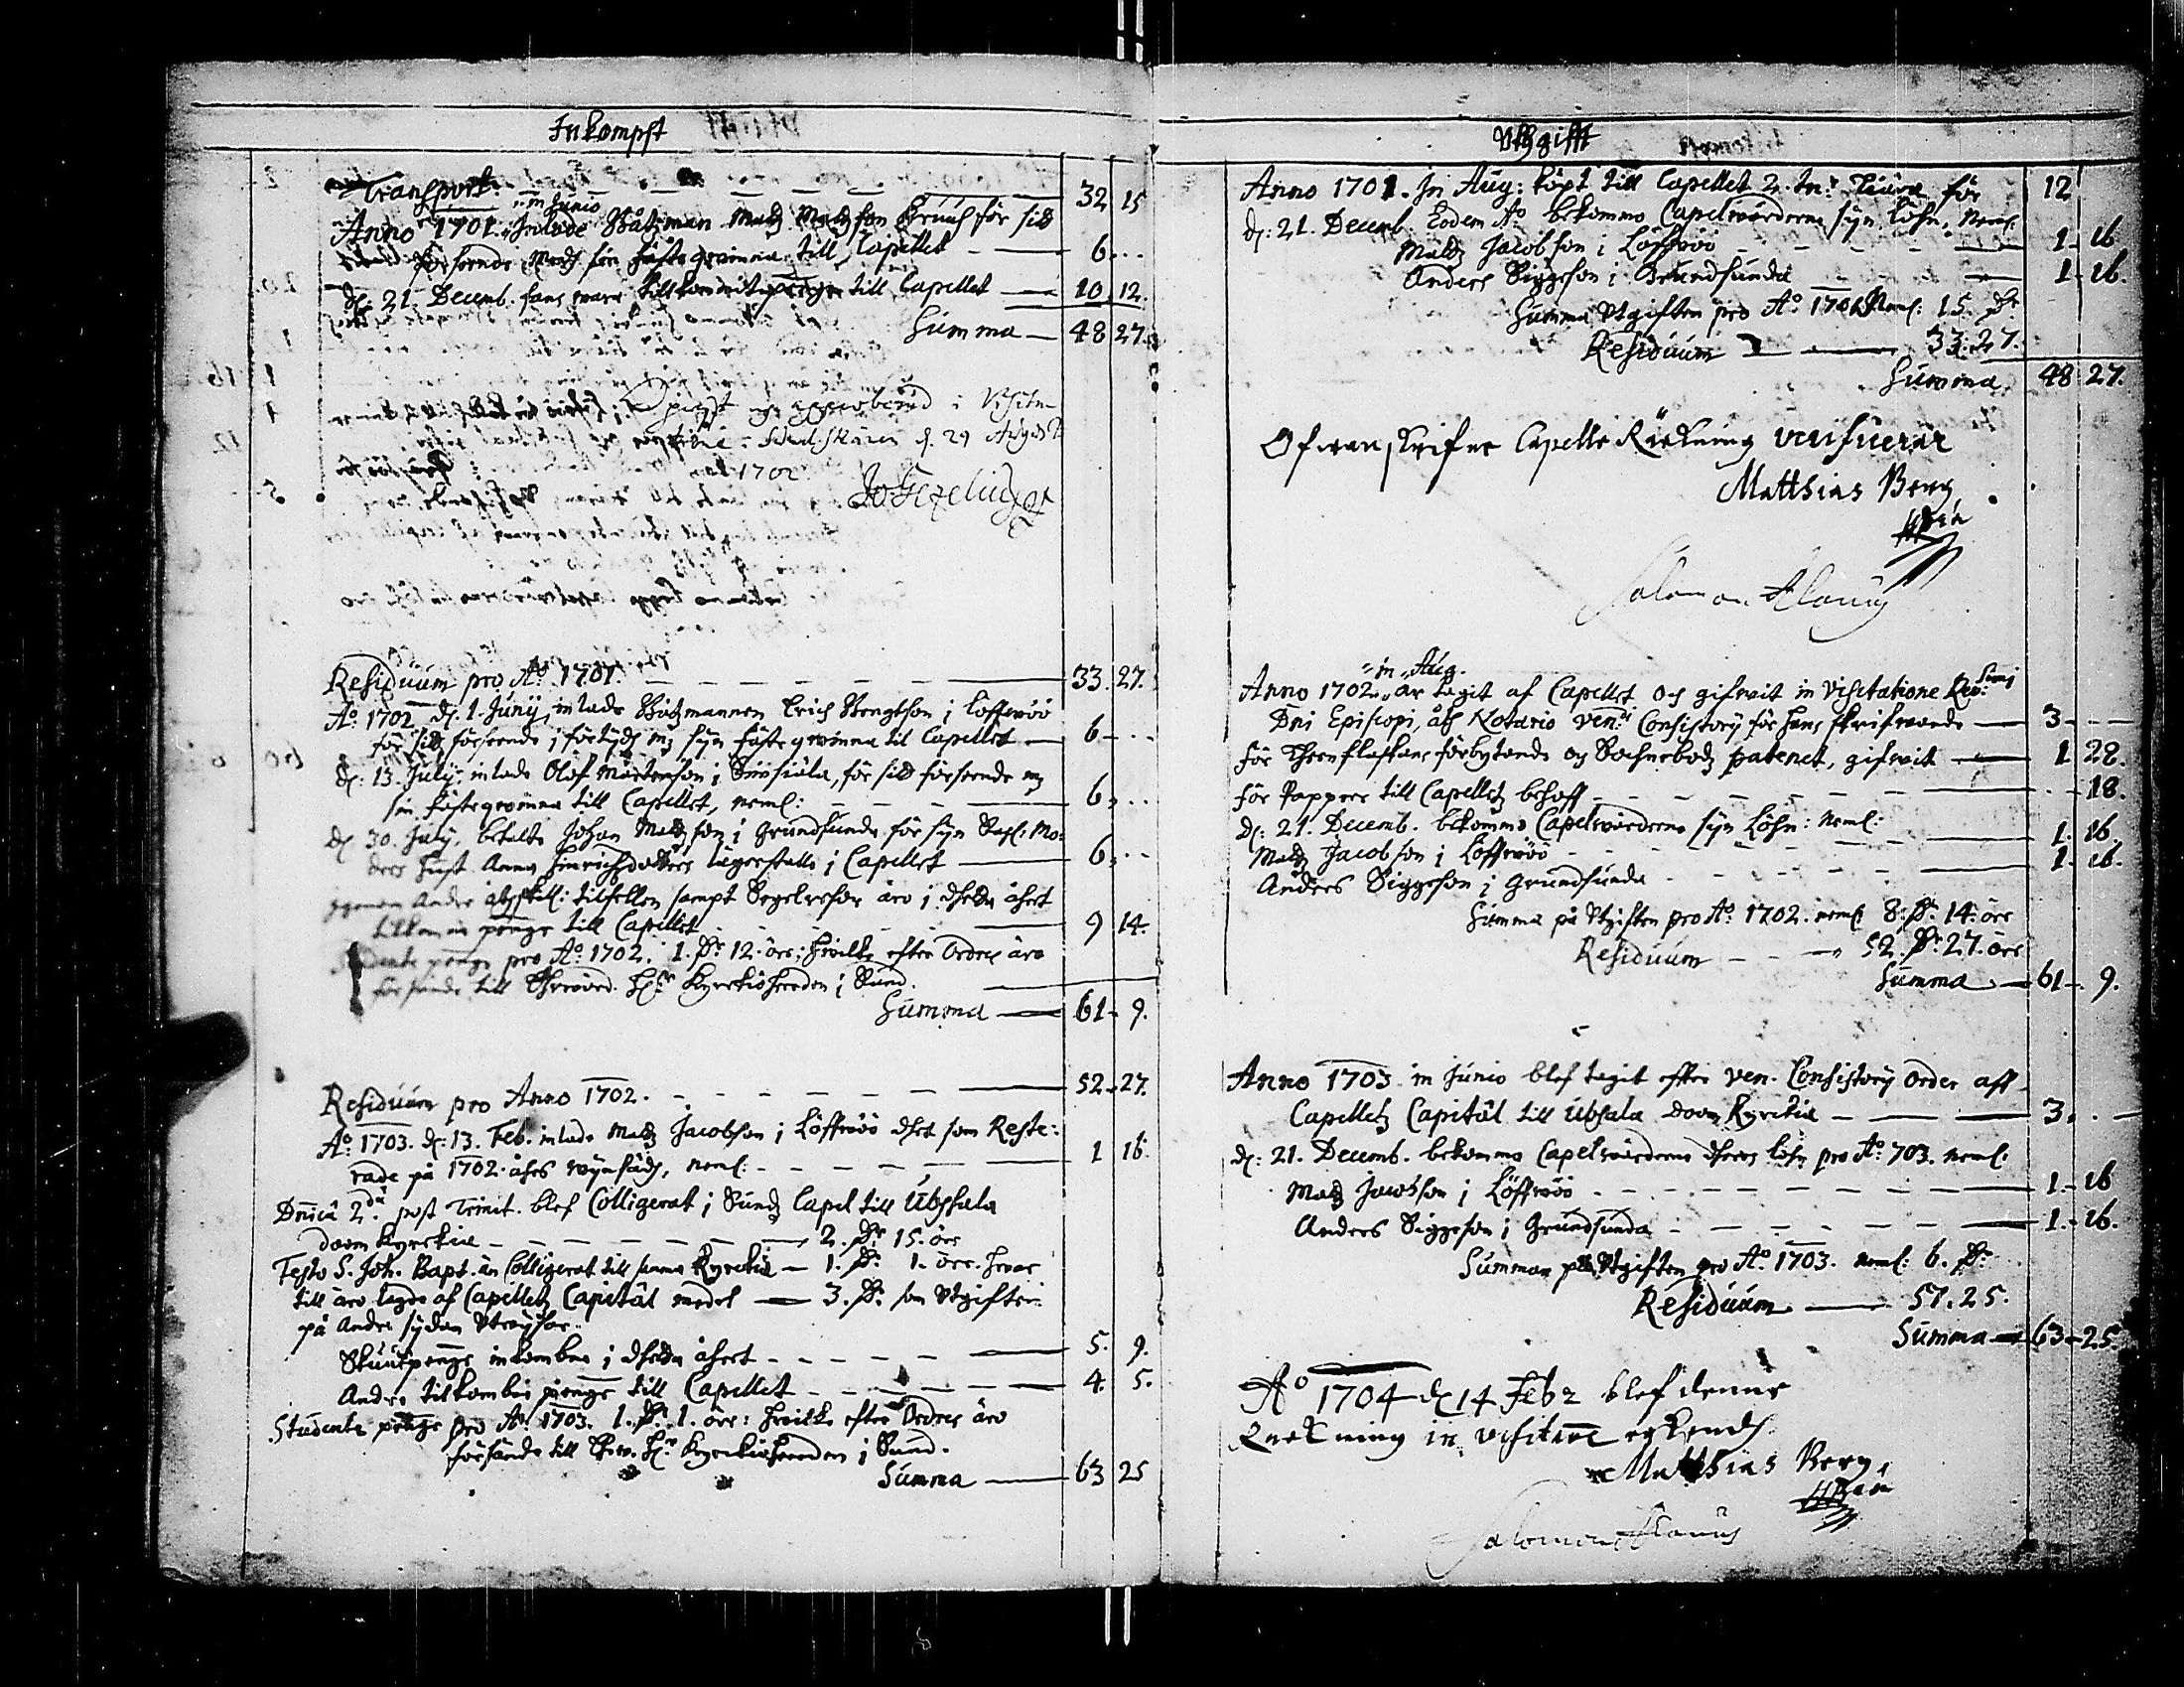 Inkompst
Transport 32 15
in Junio
Anno 1701. Inlade Båtzman Matz Matzson Kruus för sitt
förseende medh sin fästeqwinna till Capellet 6
d: 21. Decemb. fans wara tillkommit till Capellet 10 12.
Summa 48 27.
och approberad i Visita-
d. 29 Augusti
1702.
Jo Gezelius
Residuum pro Ao 1701. 33. 27.
Ao 1702 d. 1. Junij, inlade Båtzmannen Erich Bengtson i Löffwöö
för sitt förseende i förtijdh m; syn fästeqwinna til Capellet 6
d: 13. Julij. inlade Olof Mårtenson i, för sitt förseende m;
sin fästeqwinna till Capellet, neml: 6
d 30. Julij. betalte Johan Matzson i Grundsunda för syn Sahl: Mo-
ders hust. Anna Hinrichzdotters lägerstelle i Capellet 6
genom Andre tilfellen sampt Segelresor äro i dhetta åhret
tilkomne penge till Capellet 9 14.
Studente penge pro Ao 1702. 1. Dr 12. öre; hwilke efter Ordres äro
försände till Ehrewörd. H:r Kyrkioheerden i Sund.
Summa 61 9.
Residuum pro Anno 1702. 52. 27.
Ao 1703. d: 13. Feb. inlade Matz Jacobson i Löffwöö dhet som Reste-
rade på 1702. åhrs, neml: 1 16.
Dnica 2da post Trinit. blef Colligerat i Sundz Capel till Ubsala
doom kyrckia 2. Dr 15. öre
Festo S. Joh. Bapt. än Colligerat till samma Kyrckia 1. Dr 1. öre. hwar
till äro lagde af Capelletz Capital medel 3. Dr som Utgiften
på Andre sydan Utwijsar.
penge inkombne i dhetta åhret 5. 9.
Andre tilkombne penge till Capellet 4. 5.
Studente penge pro Ao 1703. 1. Dr 1. öre: hwilke efter Ordres äro
försände till Ehrw. H:r Kyrckioheerden i Sund.
Summa 63 25
Uthgifft
Anno 1701. In Aug: köpt till Capellet 2. tn:r Tiära för 12
d: 21. Decemb. Eodem Ao bekomma Capelwärderne syn Löhn, Neml.
Matz Jacobson i Löffwöö 1 16
Anders Siggeson i Grundsunda 1 16.
Summa Utgiften pro Ao 1701 Neml: 15. Dr
Residuum 33: 27.
Summa 48 27.
Ofwanskrifne Capells Räckning
Matthias Berg
Salomon Alanus
in Aug.
Anno 1702 är tagit af Capellet och gifwit in Visitatione Rev:simi
Dni Episcopi, åth Notario Ven:di Consistorij för hans skrifwande 3
för flaskans förbytande och patenet, gifwit 1 28.
för Papper till Capelletz behoff 18.
d: 21. Decemb. bekomma Capelwärderne syn Löhn: neml:
Matz Jacobson i Löffwöö 1. 16.
Anders Siggeson i Grundsunda 1. 16.
Summa på Utgiften pro Ao 1702. neml: 8. Dr 14. öre
Residuum 52. Dr 27. öre
Summa 61 9.
Anno 1703 in Junio blef tagit efter Ven. Consistorij Order aff
Capelletz Capital till Ubsala doom Kyrckia 3.
d: 21. Decemb. bekomma Capelwärderne dheras löhn pro Ao 703. neml.
Matz Jacobson i Löffwöö 1. 16
Anders Siggeson i Grundsunda 1. 16.
Summan på Utgiften pro Ao 1703. neml: 6. Dr
Residuum 57. 25.
Summa 63 25.
Ao 1704 d 14 Febr blef denne
Räckning in visitatione erkendh.
Matthias Berg
Salomon Alanus